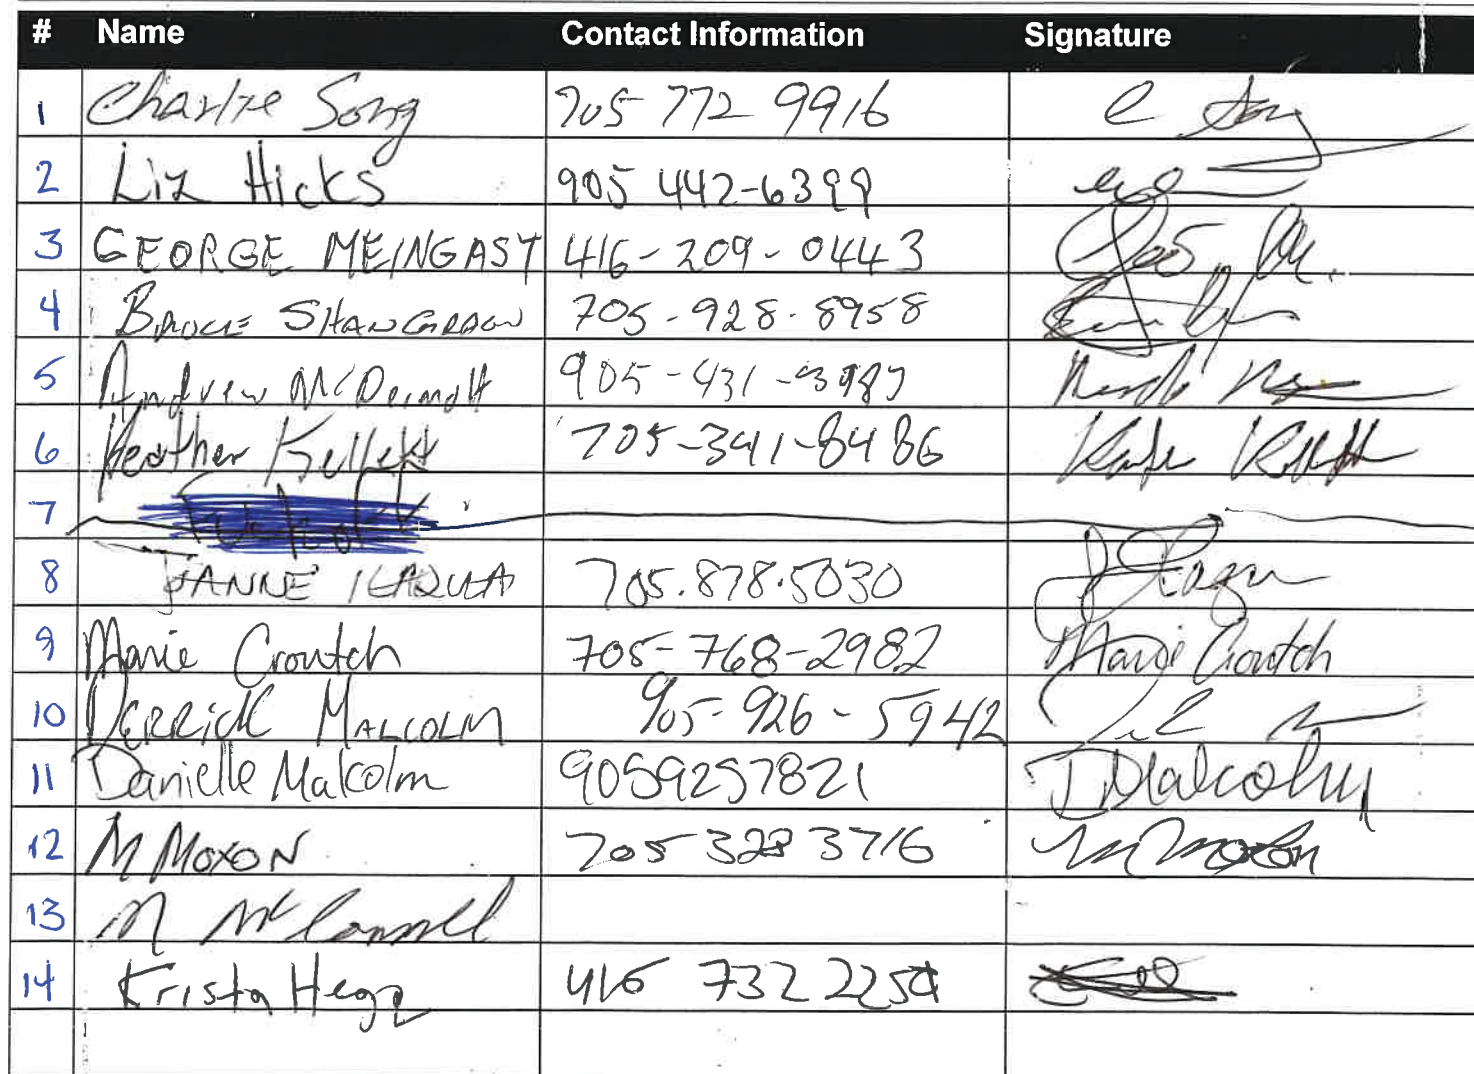 # Name Contact Information Signature
1 Charlie Song 705 772 9916 C Song
2 Liz Hicks 905 442-6399
3 GEORGE MEINGAST 416-209-0443
4 BRUCE 705-928-8958
5 Andrew McDermott 905-431-3987
6 Heather Kellett 705-341-8486
7
8 JANNE 705.878.5030
9 Marie Croutch 705-768-2982 Marie Croutch
10 DERRICK MALCOLM 905-926-5942
11 Danielle Malcolm 9059257821 D Malcolm
12 M MOXON 705 328 3716 M Moxon
13 M McConnell
14 Krista 416 732 2254